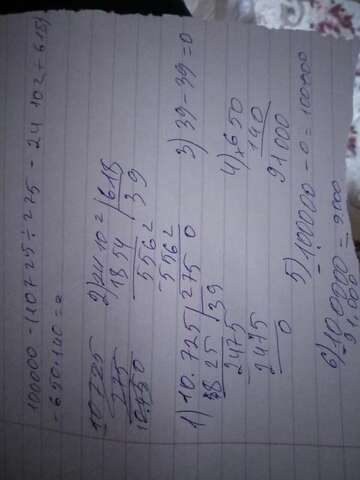 100000 - (10725 ÷ 275 - 24 102 ÷ 618)
- 650 · 140 =
10.725
275
10.450
1) 10.725 | 275
825 | 39
2475
2475
0
2) 24 102 | 618
1854 | 39
5562
5562
0
3) 39 - 39 = 0
4) × 650
140
91000
5) 100000 - 0 = 100000
6) 100000 -
- 91.000 = 9000